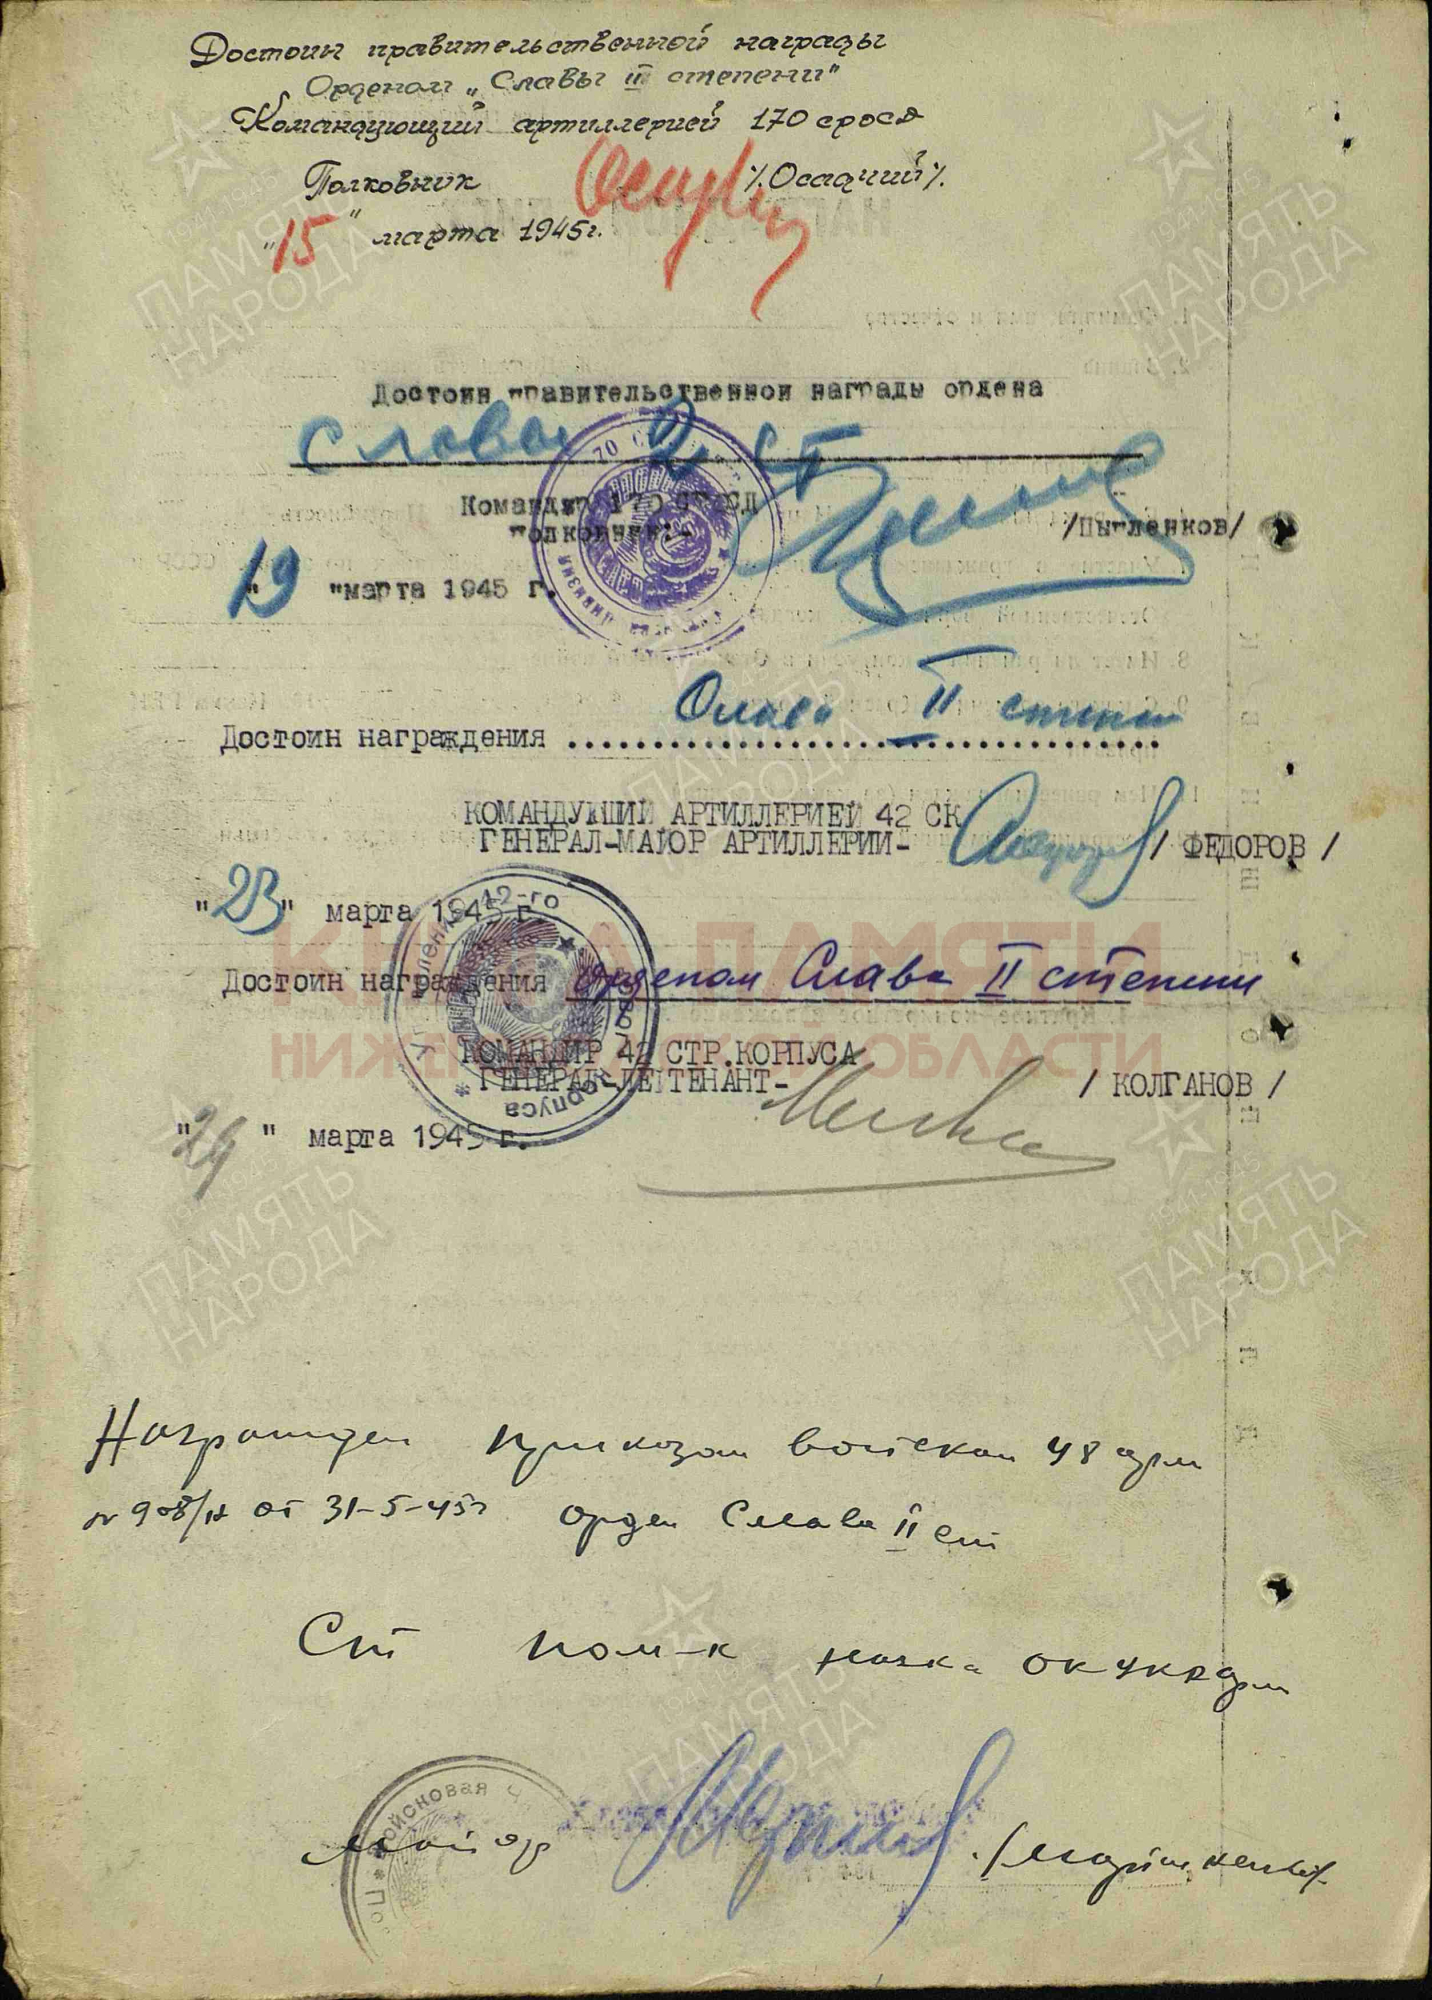 Достоин правительственной награды
Орденом „Славы II степени"
Командующий артиллерией 170 сросд
Полковник /.Осадчий/.
"15" марта 1945г.
Достоин правительственной награды ордена
Славы 2 ст
Командир 170 СРСД
полковник:- /Цыпленков/
"19 "марта 1945 г.
Достоин награждения Слава II степени
КОМАНДУЮЩИЙ АРТИЛЛЕРИЕЙ 42 СК
ГЕНЕРАЛ-МАЙОР АРТИЛЛЕРИИ- / ФЕДОРОВ /
"23" марта 1945 г.
Достоин награждения орденом Слава II степени
КОМАНДИР 42 СТР.КОРПУСА
ГЕНЕРАЛ-ЛЕЙТЕНАНТ- / КОЛГАНОВ /
"24 " марта 1945 г.
Награжден приказом войскам 48 арм
№ 908/н от 31-5-45г орден Слава II ст
Ст пом-к нач-ка ОК УК
майор
Войсковая
ПАМЯТЬ НАРОДА
1941-1945
КНИГА ПАМЯТИ
НИЖЕГОРОДСКОЙ ОБЛАСТИ